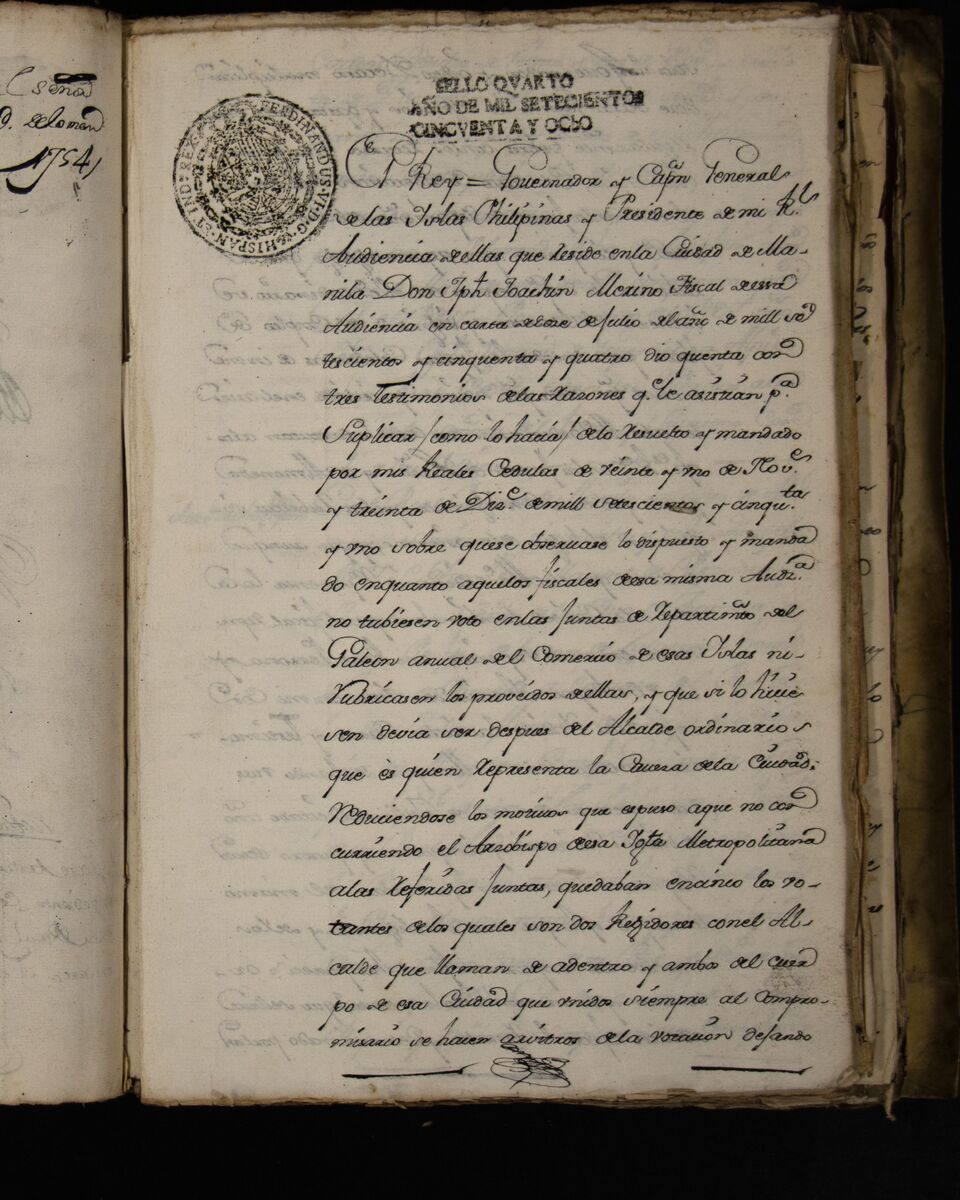 C señad
d. dela mand
1754,
SELLO QVARTO
AÑO DE MIL SETECIENTOS
CINCVENTA Y OCHO
FERDINANDUS·VI·D·G·HISPAN·ET IND·REX
El Rey = Governador y Capn General
de las Islas Philipinas y Presidente de mi Rl
Audiencia de ellas que reside en la Ciudad de Ma-
nila Don Jph Joachin Merino Fiscal de essa
Audiencia en carta de doze de Julio del año de mill se
tescientos y cinquenta y quatro dio quenta con
tres testimonios de las razones q.e le asistian p.a
Suplicar /como lo hacia/ de lo resuelto y mandado
por mis Reales Cedulas de veinte y uno de Nov.e
y treinta de Diz.e de mill setescientos y cinqu.ta
y uno sobre que se observase lo dispuesto y manda
do en quanto aque los fiscales de esa misma Audi.a
no tubiesen voto en las Juntas de repartimto del
Galeon anual del Comercio de esas Islas ni
rubricasen los proveidos de ellas, y que si lo hicie
sen devia ser despues del Alcalde ordinario
que ès quien representa la Caveza de la Ciudad:
reduciendose los motivos que espuso aque no con
curriendo el Arzobispo de esa Igta Metropolitana
alas referidas Juntas, quedaban en cinco los vo-
tantes de los quales son dos Regidores con el Al-
calde que llaman de adentro y ambos del cuer
po de esa Ciudad que unidos siempre al Compro-
misario se hacen arvitros de la votacion dejando